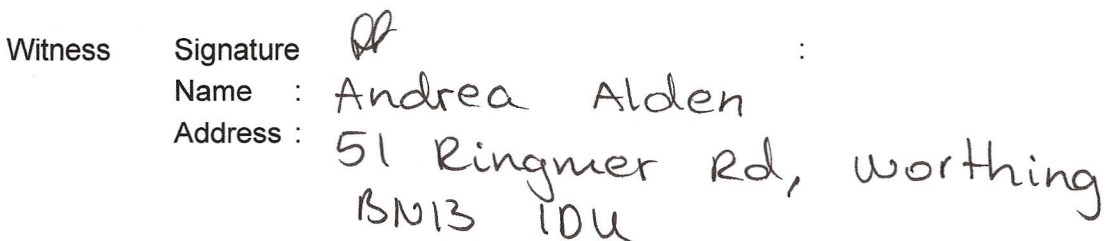 Witness Signature :
Name : Andrea Alden
Address : 51 Ringmer Rd, Worthing
BN13 1DU